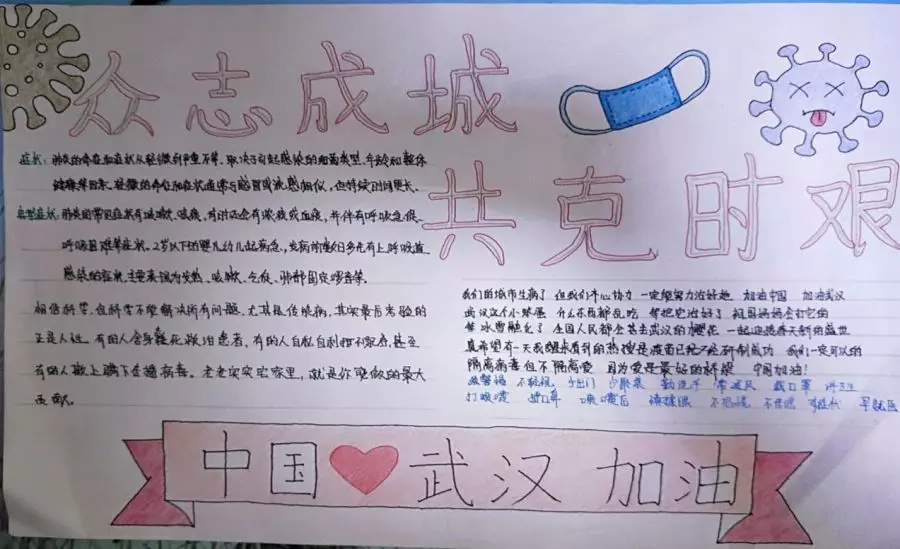 众志成城
共克时艰
症状：肺炎的症状从轻微到严重不等，取决于引起感染的细菌类型、年龄和整体
健康等因素。轻微的症状通常与感冒或流感相似，但持续时间更长。
典型症状：肺炎的常见症状有咳嗽、咳痰，有时还会有浓痰或血痰，并伴有呼吸急促、
呼吸困难等症状。2岁以下的婴儿幼儿起病急，发病前数日多先有上呼吸道
感染的症状，主要表现为发热、咳嗽、气促、肺部固定啰音等。
相信科学，但科学不能解决所有问题，尤其是传染病，其实最后考验的
正是人性。有的人舍身救治患者，有的人自私自利甚至
有的人瞒下去播病毒。老老实实在家里，就是你能做的最大
贡献。
我们的城市生病了 但我们齐心协力 一定能努力治好她 加油中国 加油武汉
武汉这个小坏蛋 什么东西都乱吃 帮把它治好了 祖国妈妈会打它的
等冰雪融化了 全国人民都会去武汉的樱花 一起迎接春天新的盛世
真希望有一天我醒来看到的热搜是疫苗已经研制成功 我们一定可以的
隔离病毒但不隔离爱 因为爱是最好的桥梁 中国加油！
不轻视 少出门 少聚集 勤洗手 常通风 戴口罩 讲卫生
打喷嚏 捂口鼻 喷嚏后 不恐慌 不信谣 早就医
中国 武汉 加油